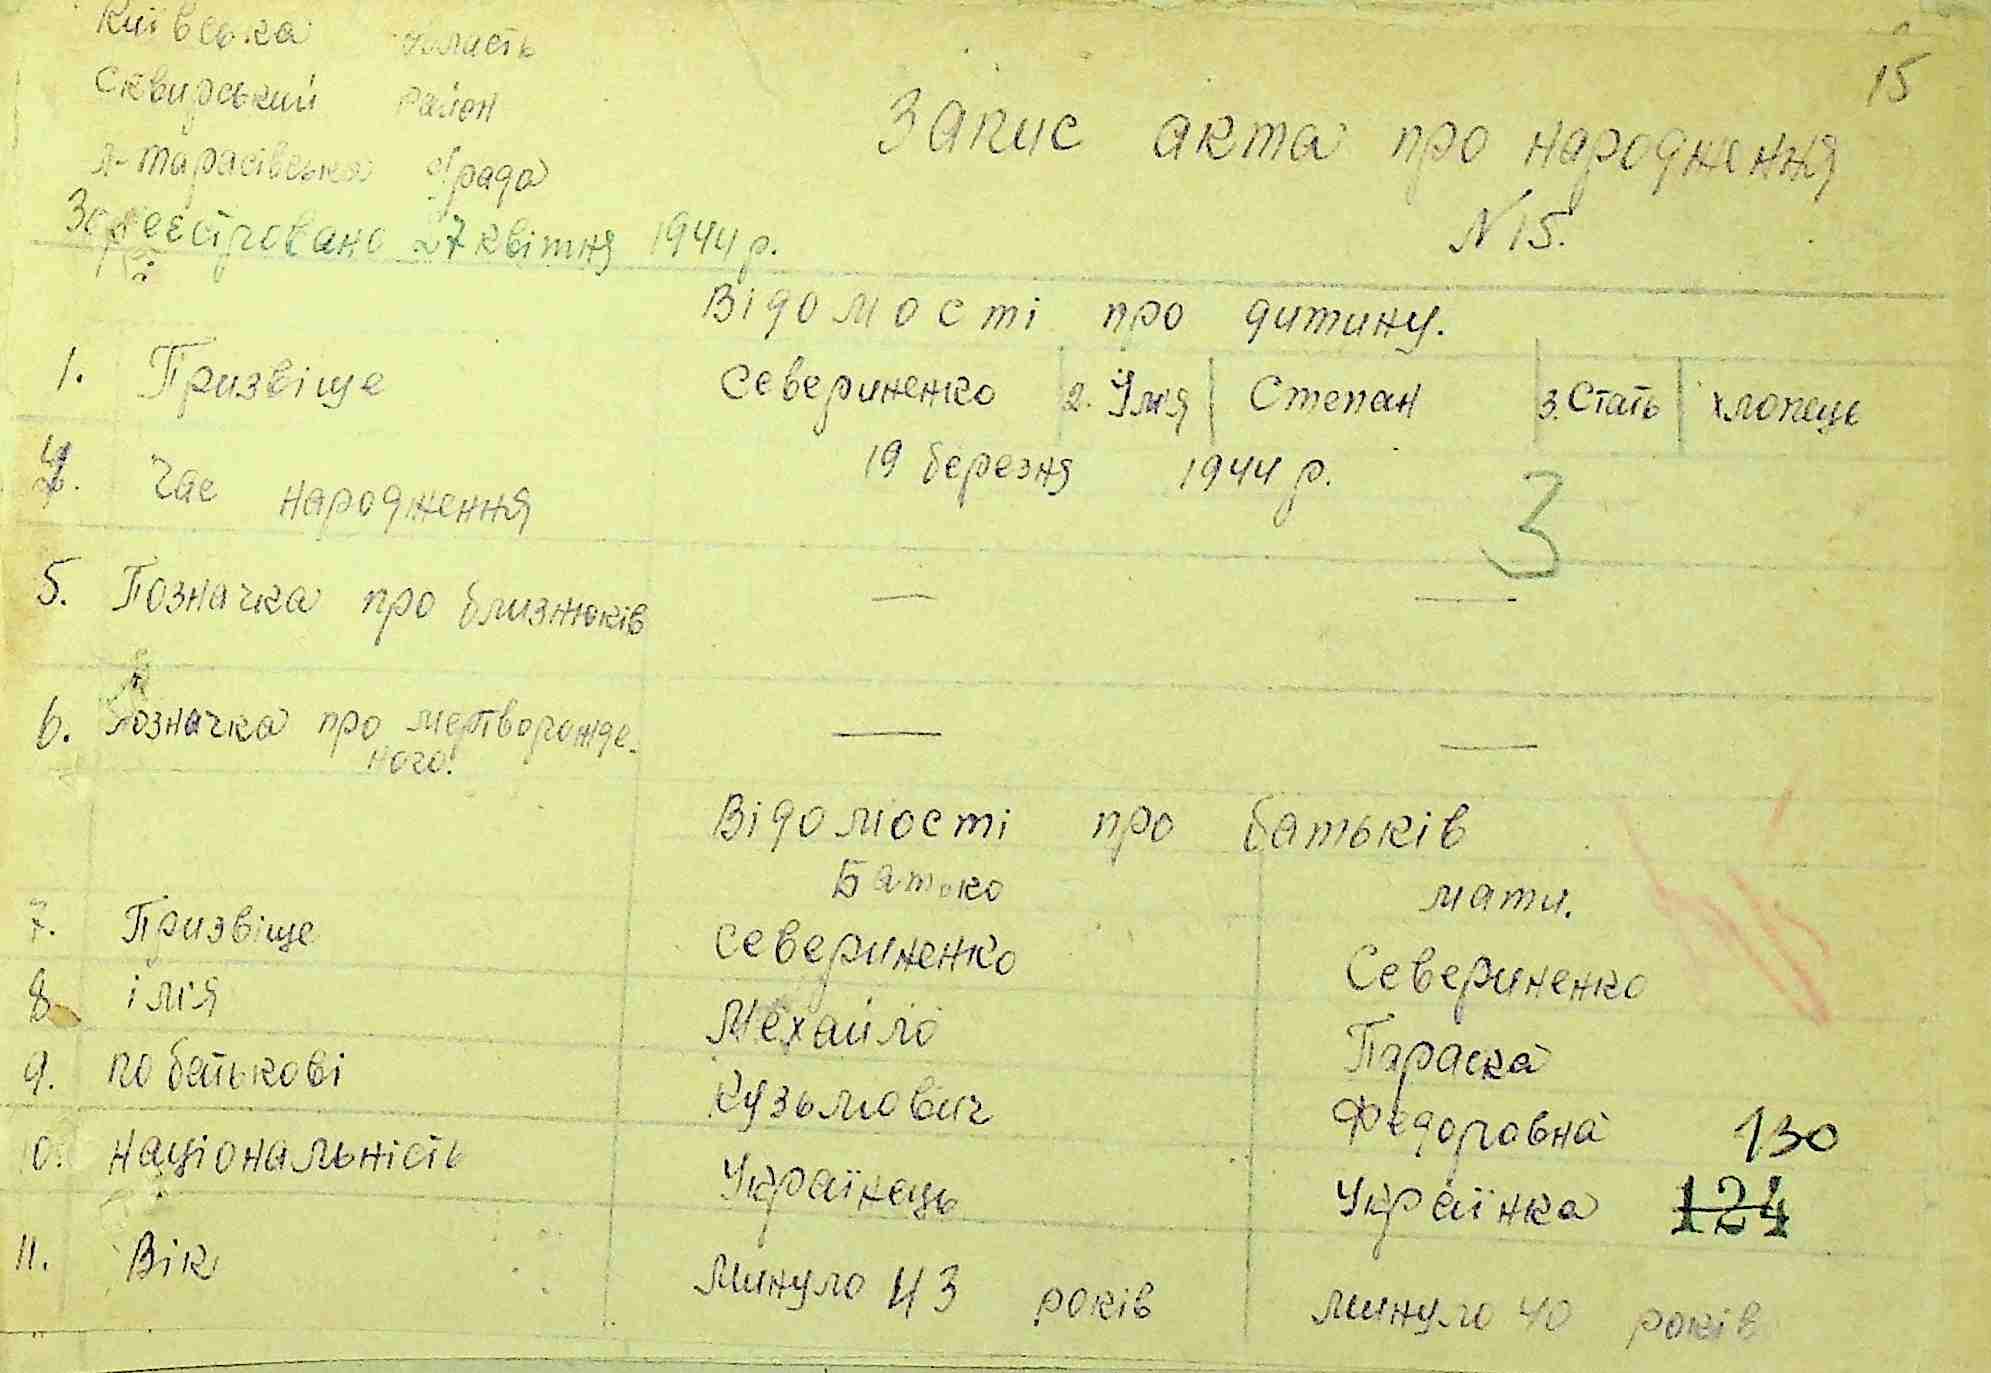 Київська область
15
Сквирський район
Запис акта про народження
л-тарасівська с/рада
N 15.
Зареєстровано 27 квітня 1944 р.
Відомості про дитину.
1. Призвіще Севериненко 2. Імя Степан 3. Стать хлопець
4. Час народження 19 березня 1944 р.
3
5. Позначка про близнюків — —
6. Позначка про мертворожде-
ного. — —
Відомості про батьків
Батько мати.
7. Призвіще Севериненко Севериненко
8. імя Михайло Параска
9. по батькові Кузьмович Федоровна 130
10. Національність Українець Українка 124
11. Вік минуло 43 років минуло 40 років